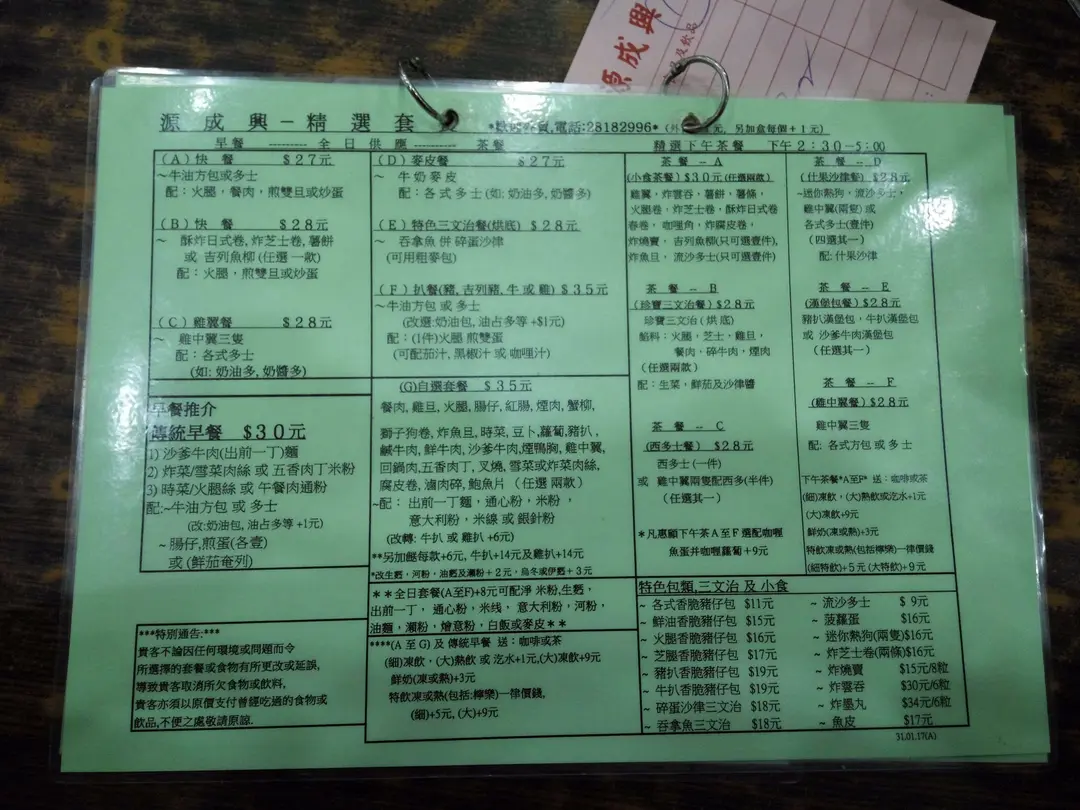 源成興
及飲品
源成興－精選套
電話:28182996* 另加盒每個+1元)
早餐 --------- 全日供應 --------- 茶餐
精選下午茶餐 下午2:30-5:00
(A)快 餐 $27元
~牛油方包或多士
配：火腿，餐肉，煎雙旦或炒蛋
(B)快 餐 $28元
~ 酥炸日式卷, 炸芝士卷, 薯餅
或 吉列魚柳 (任選一款)
配：火腿，煎雙旦或炒蛋
(C)雞翼餐 $28元
~ 雞中翼三隻
配：各式多士
(如: 奶油多, 奶醬多)
早餐推介
傳統早餐 $30元
1) 沙爹牛肉(出前一丁)麵
2) 炸菜/雪菜肉絲 或 五香肉丁米粉
3) 時菜/火腿絲 或 午餐肉通粉
配:~牛油方包 或 多士
(改:奶油包, 油占多等 +1元)
~ 腸仔,煎蛋(各壹)
或 (鮮茄奄列)
***特別通告:***
貴客不論因任何環境或問題而令
所選擇的套餐或食物有所更改或延誤,
導致貴客取消所欠食物或飲料,
貴客亦須以原價支付曾經吃過的食物或
飲品,不便之處敬請原諒.
(D)麥皮餐 $27元
~ 牛奶麥皮
配：各式多士(如: 奶油多, 奶醬多)
(E)特色三文治餐(烘底) $28元
~ 吞拿魚 併 碎蛋沙律
(可用粗麥包)
(F)扒餐(豬, 吉列豬, 牛 或 雞) $35元
~牛油方包 或 多士
(改選:奶油包, 油占多等 +$1元)
配：(1件)火腿 煎雙蛋
(可配茄汁, 黑椒汁 或 咖喱汁)
(G)自選套餐 $35元
餐肉, 雞旦, 火腿, 腸仔, 紅腸, 煙肉, 蟹柳,
獅子狗卷, 炸魚旦, 時菜, 豆卜,蘿蔔,豬扒,
鹹牛肉, 鮮牛肉, 沙爹牛肉,煙鴨胸, 雞中翼,
回鍋肉,五香肉丁, 叉燒, 雪菜或炸菜肉絲,
腐皮卷, 滷肉碎, 鮑魚片 (任選 兩款)
~配： 出前一丁麵，通心粉，米粉，
意大利粉，米線 或 銀針粉
(改轉: 牛扒 或 雞扒 +6元)
**另加餸每款+6元, 牛扒+14元及雞扒+14元
*改生麵，河粉，油麵及瀨粉+2元，烏冬或伊麵+3元
**全日套餐(A至F)+8元可配淨 米粉,生麵,
出前一丁， 通心粉， 米线， 意大利粉，河粉，
油麵，瀨粉，燴意粉，白飯或麥皮**
****(A 至 G) 及 傳統早餐 送：咖啡或茶
(細)凍飲，(大)熱飲 或 汔水+1元,(大)凍飲+9元
鮮奶(凍或熱)+3元
特飲凍或熱(包括:檸樂)一律價錢,
(細)+5元, (大)+9元
茶 餐 -- A
(小食茶餐)$30元(任選兩款)
雞翼，炸雲吞，薯餅，薯條，
火腿卷，炸芝士卷，酥炸日式卷
春卷，咖哩角，炸腐皮卷，
炸燒賣， 吉列魚柳(只可選壹件),
炸魚旦， 流沙多士(只可選壹件)
茶 餐 -- B
(珍寶三文治餐)$28元
珍寶三文治 ( 烘 底)
餡料：火腿，芝士，雞旦，
餐肉，碎牛肉，煙肉
(任選兩款)
配：生菜，鮮茄及沙律醬
茶 餐 -- C
(西多士餐) $28元
西多士 (一件)
或 雞中翼兩隻配西多(半件)
(任選其一)
*凡惠顧下午茶A至F選配咖喱
魚蛋并咖喱蘿蔔+9元
茶 餐 -- D
(什果沙律餐) $28元
~迷你熱狗，流沙多士，
雞中翼(兩隻) 或
各式多士(壹件)
(四選其一)
配: 什果沙律
茶 餐 -- E
(漢堡包餐)$28元
豬扒漢堡包，牛扒漢堡包
或 沙爹牛肉漢堡包
(任選其一)
茶 餐 -- F
(雞中翼餐)$28元
雞中翼三隻
配: 各式方包 或 多士
下午茶餐*A至F* 送：咖啡或茶
(細)凍飲，(大)熱飲或汔水+1元
(大)凍飲+9元
鮮奶(凍或熱)+3元
特飲凍或熱(包括檸樂)一律價錢
(細特飲)+5元 (大特飲)+9元
特色包類,三文治 及 小食
~ 各式香脆豬仔包 $11元
~ 鮮油香脆豬仔包 $15元
~ 火腿香脆豬仔包 $16元
~ 芝腿香脆豬仔包 $17元
~ 豬扒香脆豬仔包 $19元
~ 牛扒香脆豬仔包 $19元
~ 碎蛋沙律三文治 $18元
~ 吞拿魚三文治 $18元
~ 流沙多士 $ 9元
~ 菠蘿蛋 $16元
~ 迷你熱狗(兩隻)$16元
~ 炸芝士卷(兩條)$16元
~ 炸燒賣 $15元/8粒
~ 炸雲吞 $30元/6粒
~ 炸墨丸 $34元/6粒
~ 魚皮 $17元
31.01.17(A)